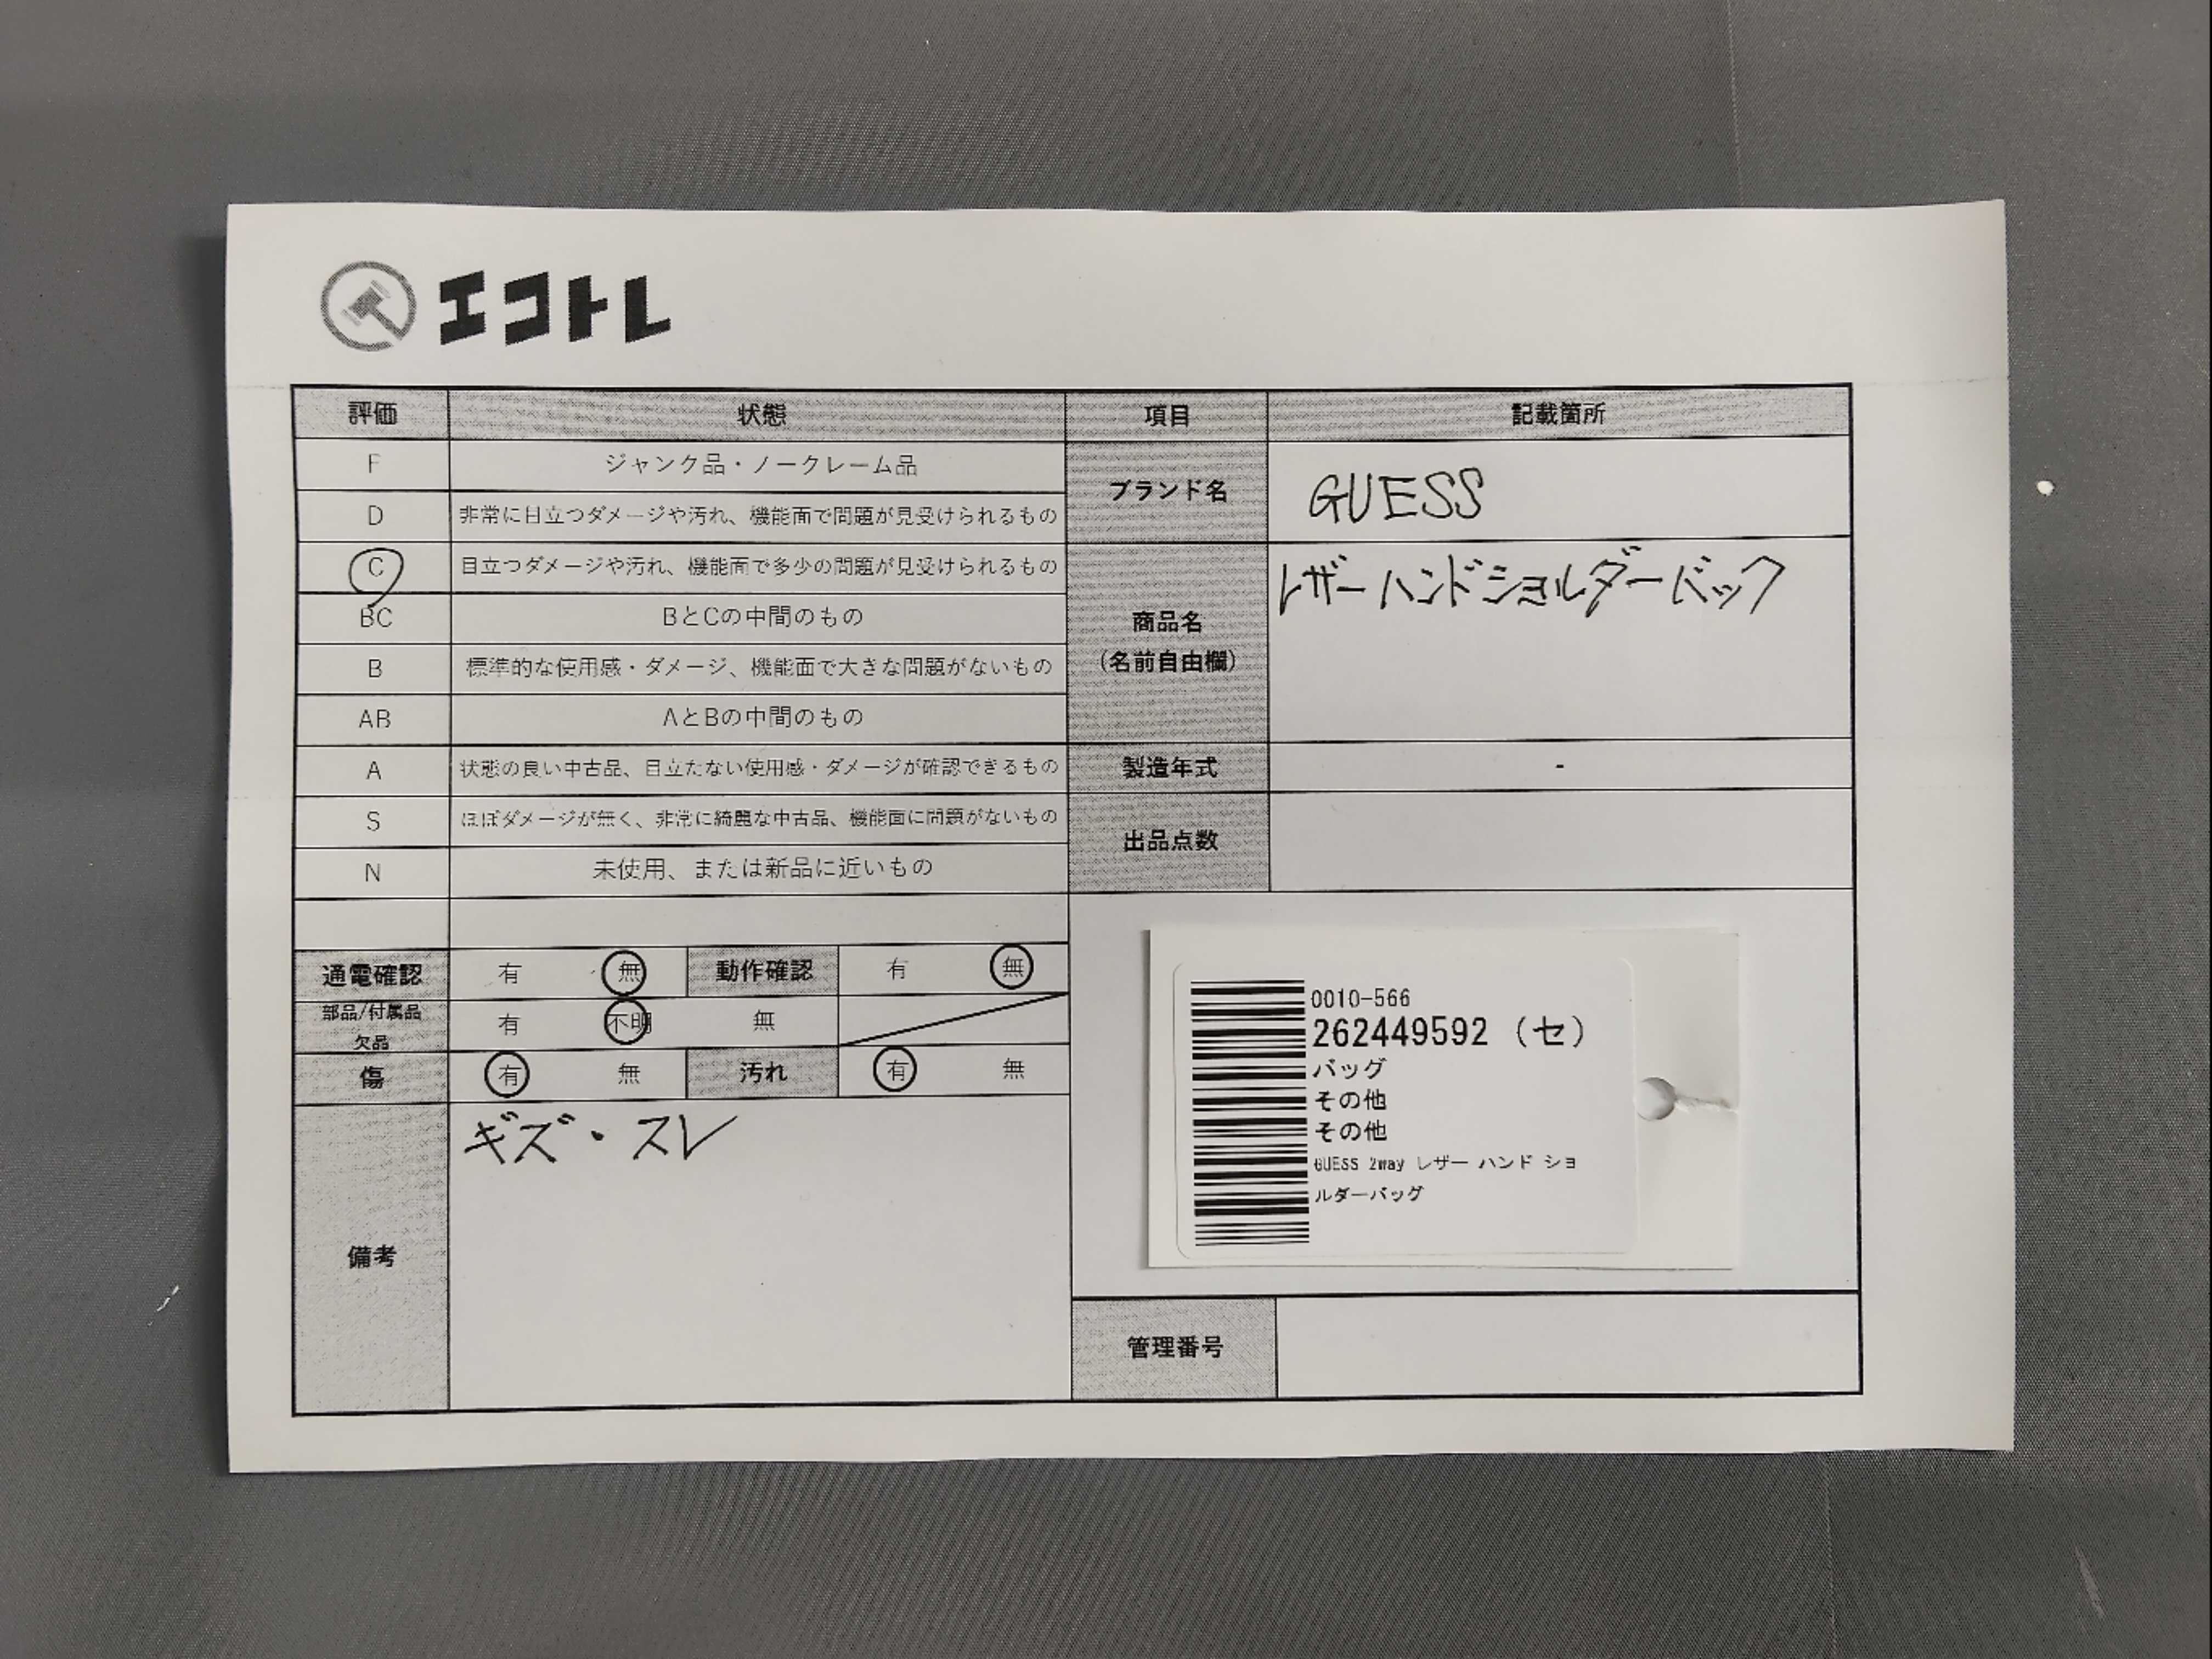 エコトレ
評価 状態 項目 記載箇所
F ジャンク品・ノークレーム品
D 非常に目立つダメージや汚れ、機能面で問題が見受けられるもの
ブランド名 GUESS
C 目立つダメージや汚れ、機能面で多少の問題が見受けられるもの
BC BとCの中間のもの
B 標準的な使用感・ダメージ、機能面で大きな問題がないもの
AB AとBの中間のもの
商品名
(名前自由欄)
レザーハンドショルダーバック
A 状態の良い中古品、目立たない使用感・ダメージが確認できるもの
製造年式 -
S ほぼダメージが無く、非常に綺麗な中古品、機能面に問題がないもの
N 未使用、または新品に近いもの
出品点数
通電確認 有 無 動作確認 有 無
部品/付属品
欠品
有 不明 無
傷 有 無 汚れ 有 無
備考
キズ・スレ
0010-566
262449592 (セ)
バッグ
その他
その他
GUESS 2way レザー ハンド ショ
ルダーバッグ
管理番号